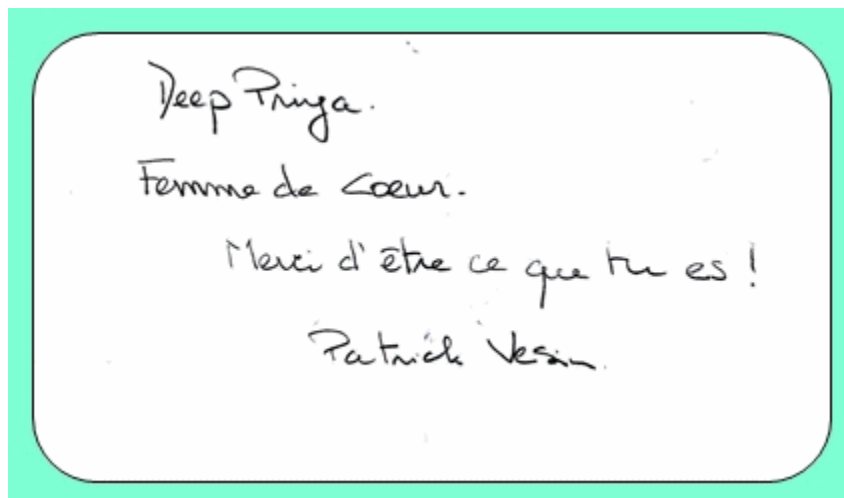 Deep Priya.
Femme de Coeur.
Merci d'être ce que tu es !
Patrick Vesin